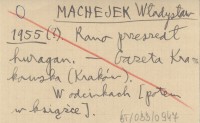 O MACHEJEK Władysław
1955 (?) Rano przeszedł
huragan. — Gazeta Kra-
kowska (Kraków).
W odcinkach [potem
w książce].